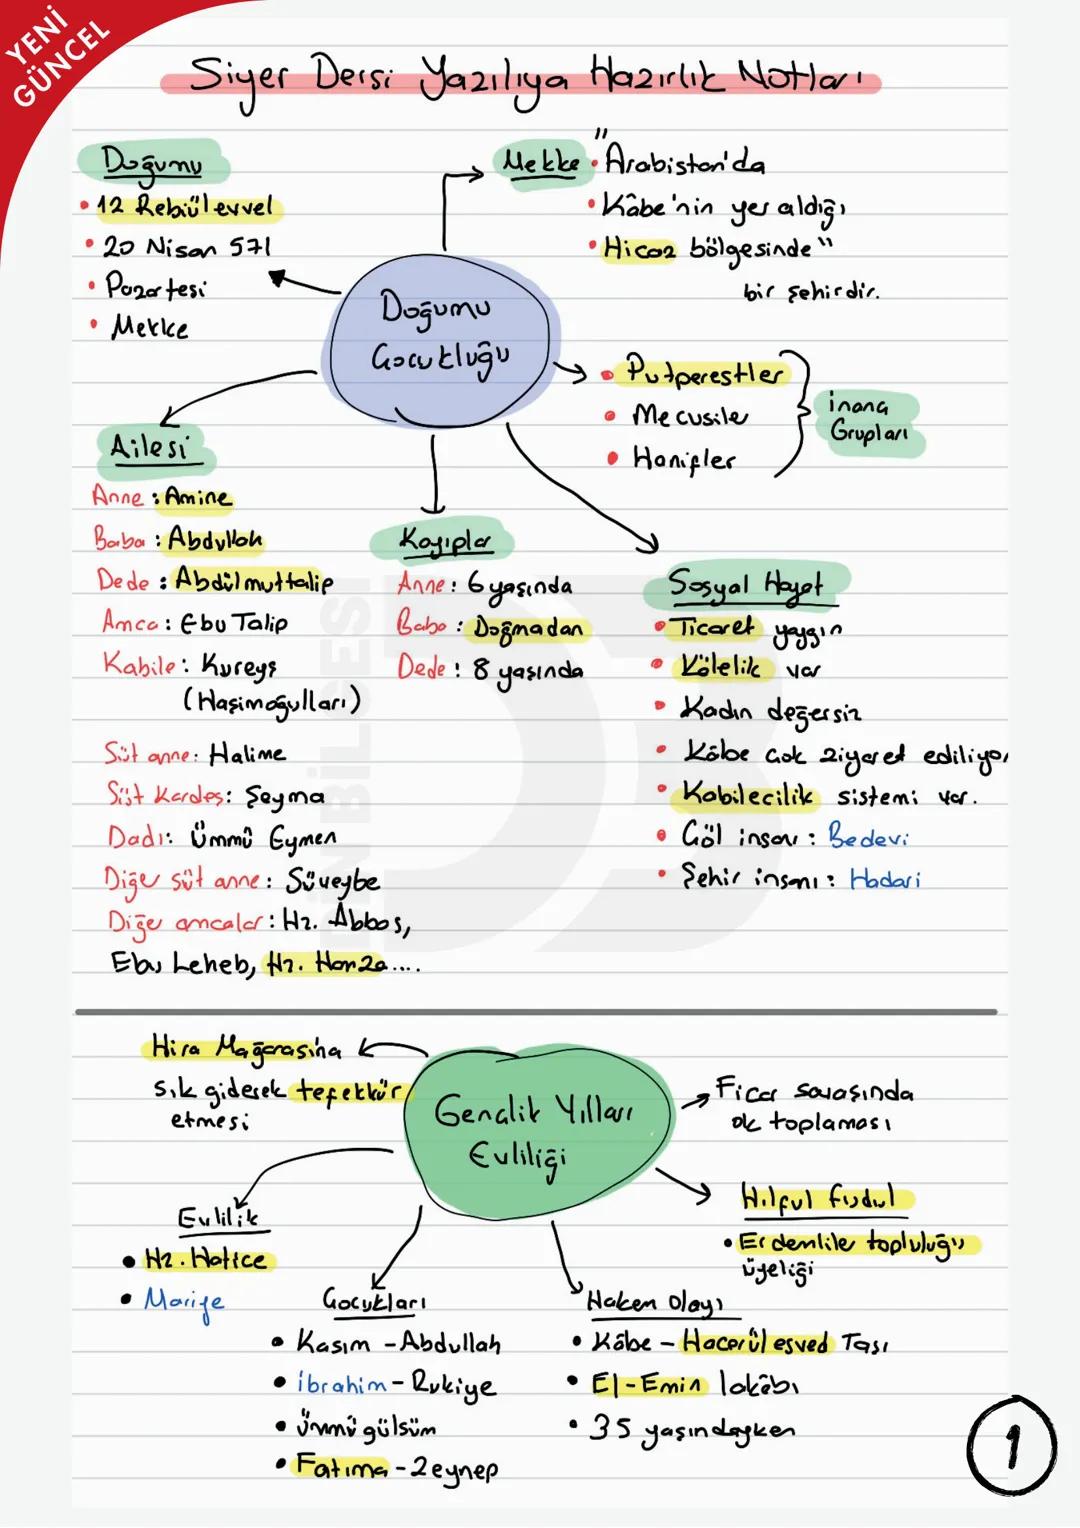 YENİ
GÜNCEL
Siyer Dersi Yazılıya Hazırlık Notları
Doğumu
• 12 Rebiülevvel
• 20 Nisan 571
• Pazartesi
• Mekke
Mekke
"• Arabistan'da
• Kâbe'nin yer aldığı
• Hicaz bölgesinde"
bir şehirdir.
Doğumu
Çocukluğu
• Putperestler
• Mecusiler
• Hanifler
inanç
Grupları
Ailesi
Anne : Amine
Baba : Abdullah
Dede : Abdülmuttalip
Amca : Ebu Talip
Kabile : Kureyş
(Haşimoğulları)
Süt anne : Halime
Süt Kardeş : Şeyma
Dadı : Ümmü Eymen
Diğer süt anne : Süveybe
Diğer amcalar : Hz. Abbas,
Ebu Leheb, Hz. Hamza....
Kayıplar
Anne : 6 yaşında
Baba : Doğmadan
Dede : 8 yaşında
Sosyal Hayat
• Ticaret yaygın
• Kölelik var
• Kadın değersiz
• Kâbe çok ziyaret ediliyor
• Kabilecilik sistemi var.
• Çöl insanı : Bedevi
• Şehir insanı : Hadari
DİN BİLGESİ
Gençlik Yılları
Evliliği
Hira Mağarasına
sık giderek tefekkür
etmesi
Ficar savaşında
ok toplaması
Hilful fudul
• Erdemliler topluluğu
üyeliği
Evlilik
• Hz. Hatice
• Mariye
Çocukları
• Kasım - Abdullah
• İbrahim - Rukiye
• Ümmü gülsüm
• Fatıma - Zeynep
Hakem Olayı
• Kâbe - Hacerül esved Taşı
• El-Emin lakabı
• 35 yaşındayken
1